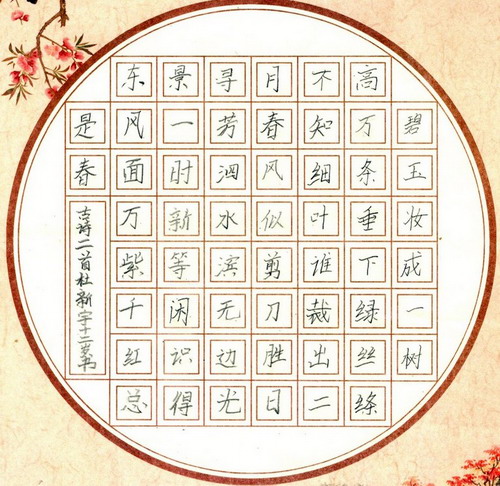 碧玉妆成一树
高万条垂下绿丝绦
不知细叶谁裁出二
月春风似剪刀胜日
寻芳泗水滨无边光
景一时新等闲识得
东风面万紫千红总
是春
古诗二首杜新宇十二岁书